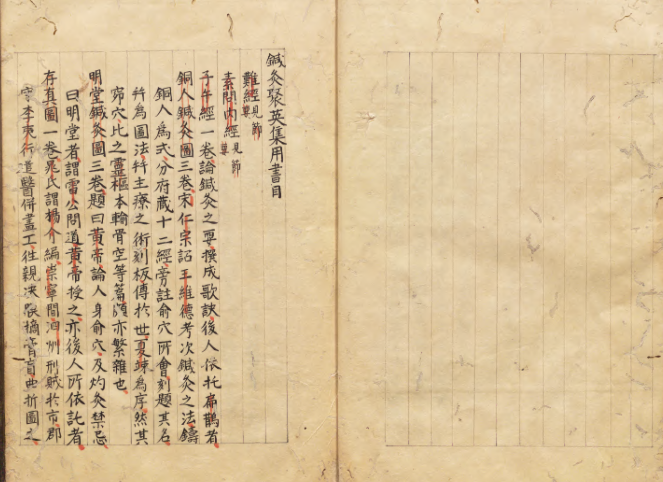 鍼灸聚英集用書目
難經見節要
素問內經見節要
子午經一卷論鍼灸之要撰成歌訣後人依托扁鵲者
銅人鍼灸圖三卷宋仁宗詔王維德考次鍼灸之法鑄
銅人為式分府藏十二經旁註俞穴所會刻題其名
并為圖法并主療之術刻板傳於世夏竦為序然其
窌穴比之靈樞本輸骨空等篇頗亦繁雜也
明堂鍼灸圖三卷題曰黃帝論人身俞穴及灼灸禁忌
曰明堂者謂雷公問道黃帝授之亦後人所依託者
存真圖一卷晁氏謂楊介編崇寧間泗州刑賊於市郡
守李夷行遣醫併畫工往親決膜摘膏肓曲折圖之